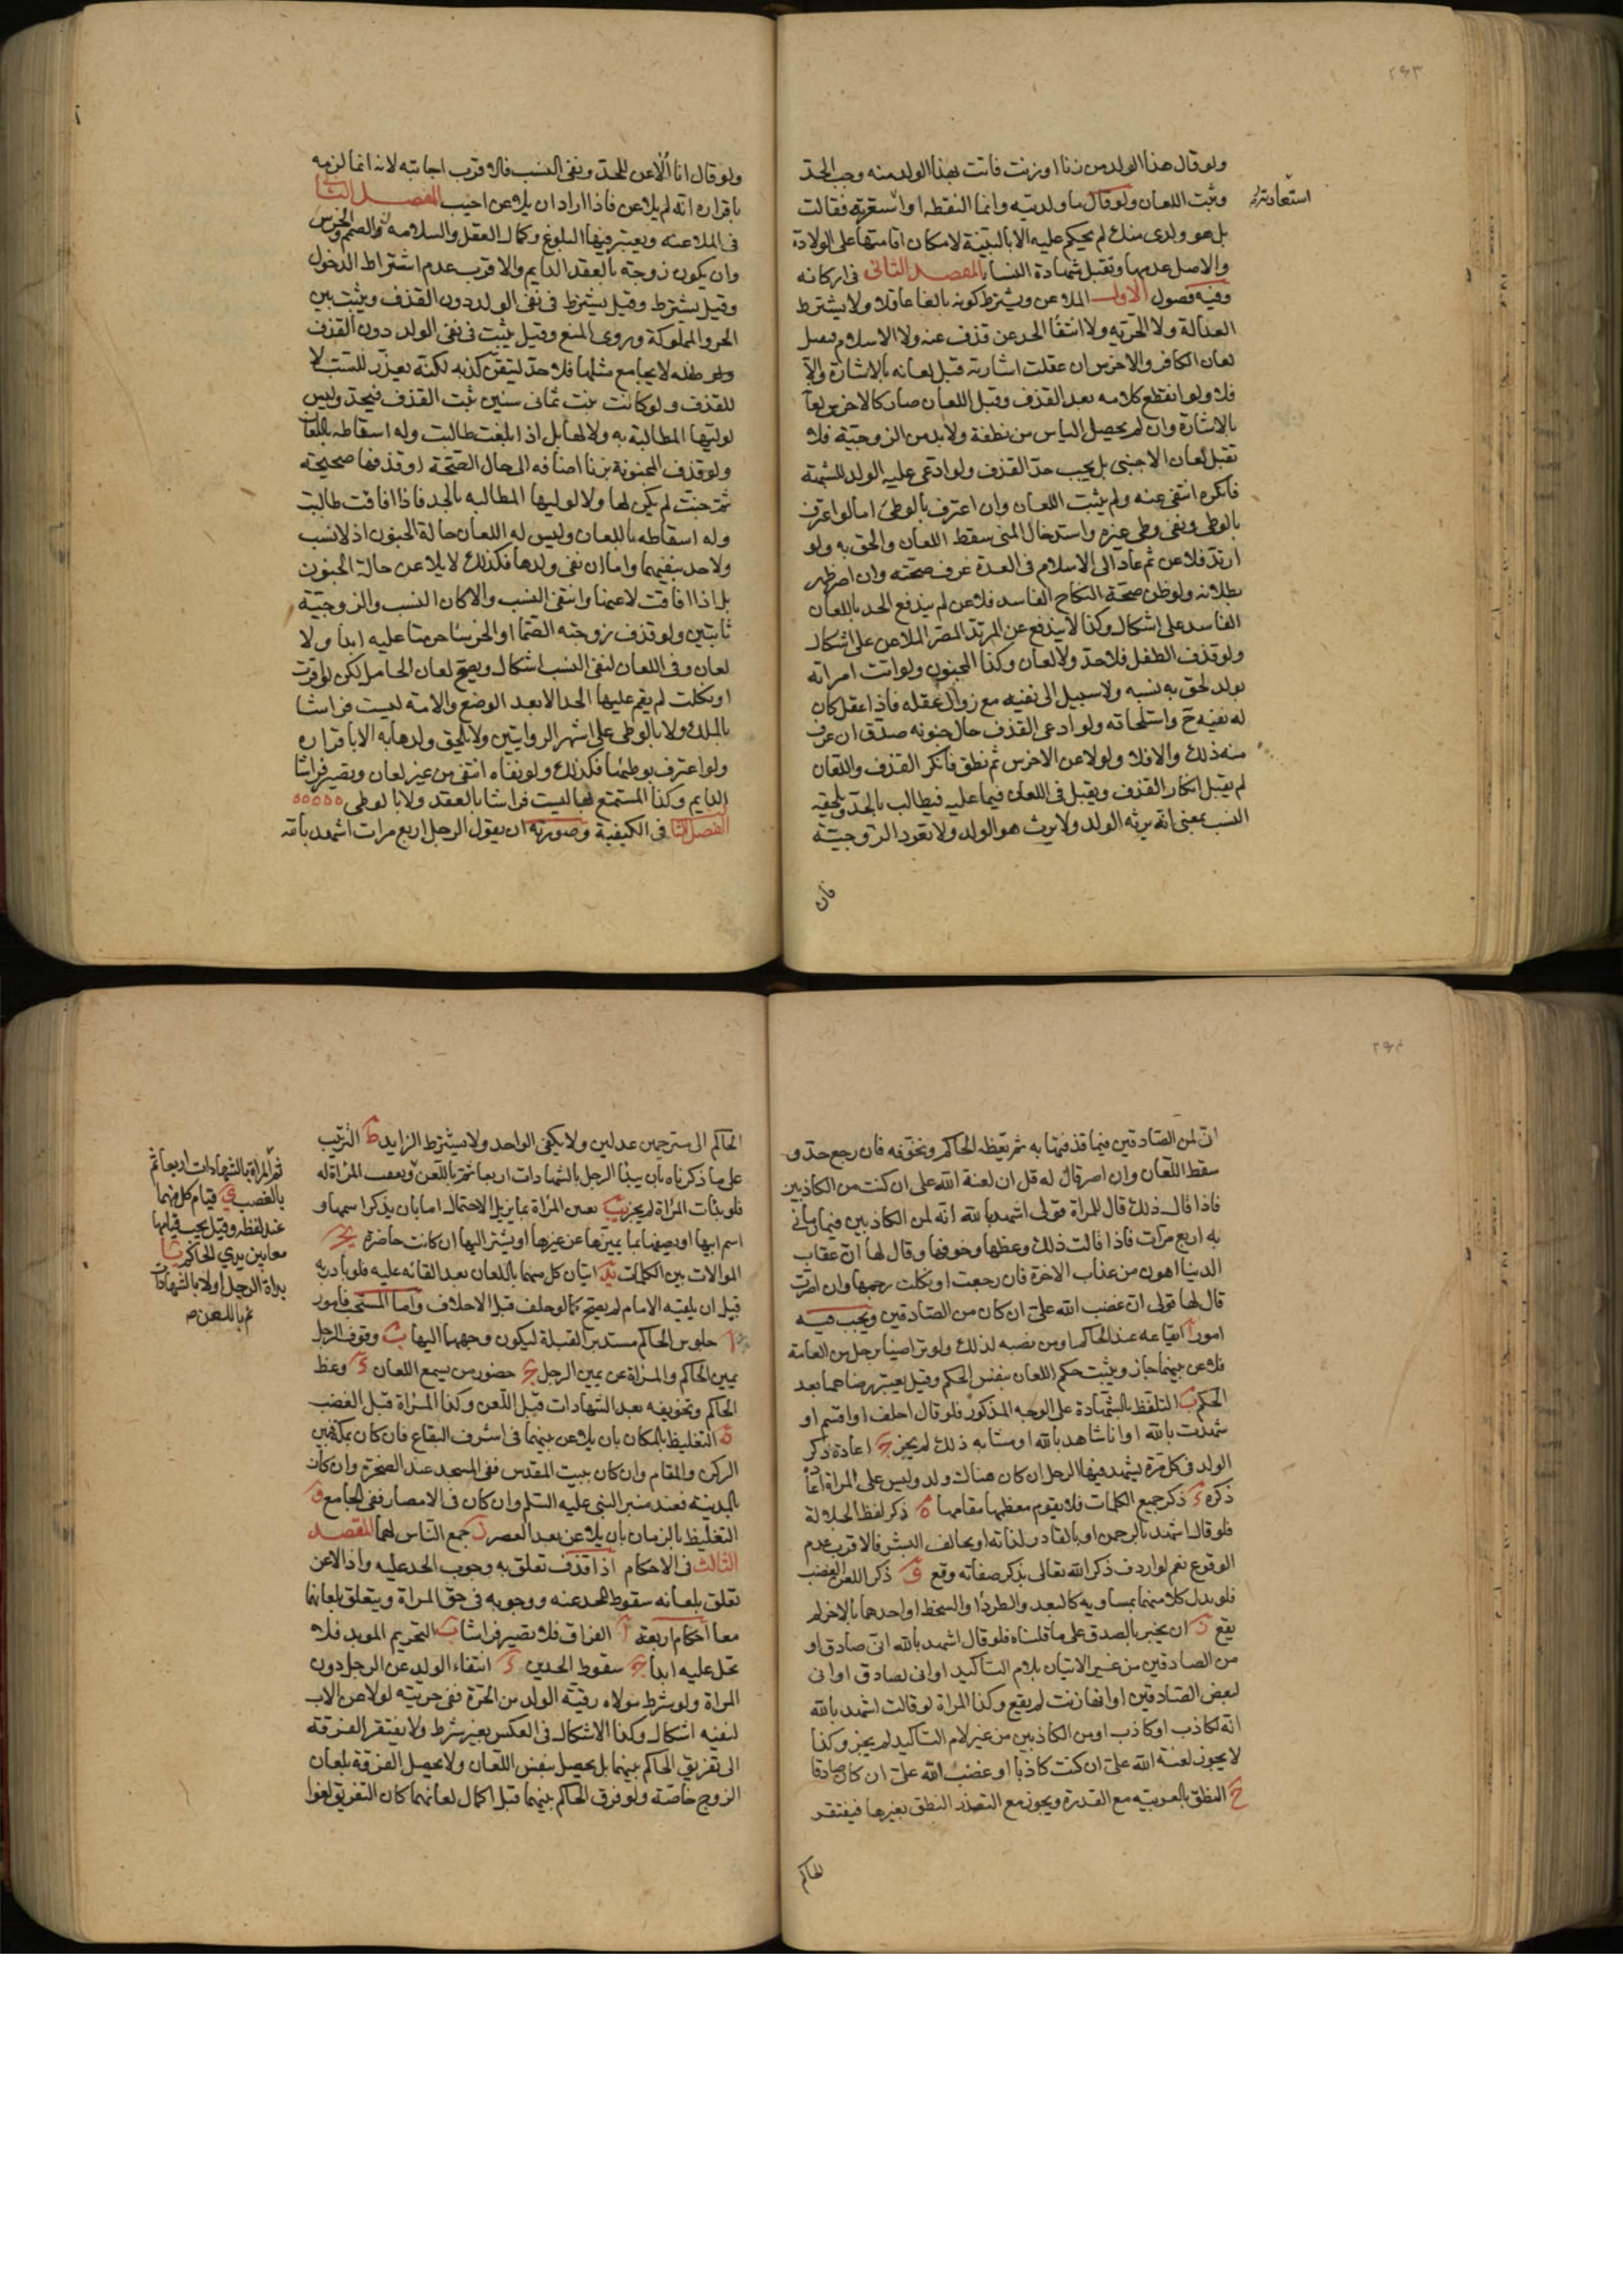 ٢٤٣
ولو قال هذا الولد من زنا او زنت فاتت بهذا الولد منه وجب الحد
وثبت اللعان ولو قال ما ولدتيه وانما التقطته او استعرتيه فقالت
استعارته
بل هو ولدى منك لم يحكم عليه الا بالبينة لامكان اقامتها على الولادة
والاصل عدمها وتقبل شهادة النساء المقصد الثانى فى اركانه
وفيه فصول الاول الملاعن ويشترط كونه بالغا عاقلا ولا يشترط
العدالة ولا الحرية ولا انتفا الحد عن قذف عنه ولا الاسلام فيقبل
لعان الكافر والاخرس ان عقلت اشارته قبل لعانه بالاشارة والا
فلا ولو انقطع كلامه بعد القذف وقبل اللعان صار كالاخرس لعا
بالاشارة وان لم يحصل الياس من نطقه ولابد من الزوجية فلا
تقبل لعان الاجنبى بل يجب حد القذف ولو ادعى عليه الولد للشبهة
فانكره انتفى عنه ولم يثبت اللعان وان اعترف بالوطى اما لو اعترف
بالوطى ونفى وطى غيره واستدخال المنى سقط اللعان والحق به ولو
ارتد فلاعن ثم عاد الى الاسلام فى العدة عرف صحته وان اصر ظهر
بطلانه ولو ظن صحة النكاح الفاسد فلاعن لم يندفع الحد باللعان
الفاسد على اشكال وكذا لا يندفع عن المرتد المصر الملاعن على اشكال
ولو قذف الطفل فلا حد ولا لعان وكذا المجنون ولو اتت امراته
بولد لحق به نسبه ولا سبيل الى نفيه مع زوال عقله فاذا عقل كان
له نفيه ح واستلحاقه ولو ادعى القذف حال جنونه صدق ان عرف
منه ذلك والا فلا ولو لاعن الاخرس ثم نطق فانكر القذف واللعان
لم يقبل انكار القذف ويقبل فى اللعان فيما عليه فيطالب بالحد ويلحقه
النسب بمعنى انه يرثه الولد ولا يرث هو الولد ولا تعود الزوجية
فان
ولو قال انا الاعن للحد ونفى النسب فالاقرب اجابته لانه انما لزمه
باقراره انه لم يلاعن فاذا اراد ان يلاعن اجيب الفصل الثانى
فى الملاعنة ويعتبر فيها البلوغ وكمال العقل والسلامة من الصمم والخرس
وان يكون زوجته بالعقد الدايم والاقرب عدم اشتراط الدخول
وقيل يشترط وقيل يشترط فى نفى الولد دون القذف ويثبت بين
الحر والمملوكة وروى المنع وقيل يثبت فى نفى الولد دون القذف
ولو طفله لا يجامع مثلها فلا حد لتيقن كذبه لكنه يعزر للسب لا
للقذف ولو كانت بنت ثمانى سنين ثبت القذف فيحد وليس
لوليها المطالبة به ولا لها بل اذا بلغت طالبت وله اسقاطه باللعان
ولو قذف المجنونة بزنا اضافه الى حال الصحة او قذفها صحيحة
ثم جنت لم يكن لها ولا لوليها المطالبه بالحد فاذا افاقت طالبت
وله اسقاطه باللعان وليس له اللعان حالة الجنون اذ لا نسب
ولا حد ينفيهما واما ان نفى ولدها فكذلك لا يلاعن حالة الجنون
بل اذا افاقت لاعنها وانتفى النسب والا كان النسب والزوجية
ثابتين ولو قذف زوجته الصما او الخرسا حرمتا عليه ابدا ولا
لعان وفى اللعان لنفى النسب اشكال ويصح لعان الحامل لكن لو اقرت
او نكلت لم يقم عليها الحد الا بعد الوضع والامة ليست فراشا
بالملك ولا بالوطى على اشهر الروايتين ولا يلحق ولدها به الا باقراره
ولو اعترف بوطئها فكذلك ولو نفاه انتفى من غير لعان وتصير فراشا
الدايم وكذا المستمتع بها ليست فراشا بالعقد ولا بالوطى
الفصل الثا فى الكيفية وصورته ان يقول الرجل اربع مرات اشهد بالله
٢٤٤
انى لمن الصادقين فيما قذفتها به ثم يعظه الحاكم ويخوفه فان رجع حد و
سقط اللعان وان اصر قال له قل ان لعنة الله على ان كنت من الكاذبين
فاذا قال ذلك قال للمراة قولى اشهد بالله انه لمن الكاذبين فيما رمانى
به اربع مرات فاذا قالت ذلك وعظها وخوفها وقال لها ان عقاب
الدنيا اهون من عذاب الاخرة فان رجعت او نكلت رجمها وان اصرت
قال لها قولى ان غضب الله على ان كان من الصادقين ويجب فيه
امور ا ايقاعه عند الحاكم او من نصبه لذلك ولو تراضيا برجل من العامة
فلاعن بينهما جاز ويثبت حكم اللعان بنفس الحكم وقيل يعتبر رضاهما بعد
الحكم ب التلفظ بالشهادة على الوجه المذكور فلو قال احلف او اقسم او
شهدت بالله او انا شاهد بالله او ما شابه ذلك لم يجز ج اعادة ذكر
الولد فى كل مرة يشهد فيها الرجل ان كان هناك ولد وليس على المراة اعادة
ذكره د ذكر جميع الكلمات فلا يقوم معظمها مقامها ه ذكر لفظ الجلالة
فلو قال اشهد بالرحمن او بالقادر لذاته او بخالف البشر فالاقرب عدم
الوقوع نعم لو اردف ذكر الله تعالى بذكر صفاته وقع و ذكر اللعن والغضب
فلو بدل كلا منهما بمساويه كالبعد والطرد او السخط او احدهما بالاخر لم
يقع ز ان يخبر بالصدق على ما قلناه فلو قال اشهد بالله انى صادق او
من الصادقين من غير الاتيان بلام التاكيد او انى لصادق او انى
لبعض الصادقين او انها زنت لم يقع وكذا المراة لو قالت اشهد بالله
انه لكاذب او كاذب او من الكاذبين من غير لام التاكيد لم يجز وكذا
لا يجوز لعنة الله على ان كنت كاذبا او غضب الله على ان كان صادقا
ح النطق بالعربيه مع القدرة ويجوز مع التعذر النطق بغيرها فيفتقر
الحاكم
الحاكم الى مترجمين عدلين ولا يكفى الواحد ولا يشترط الزايد ط الترتيب
على ما ذكرناه بان يبدا الرجل بالشهادات اربعا ثم باللعن ويعقب المراة له
فلو بدأت المراة لم يجز يب تعين المراة بما يزيل الاحتمال اما بان يذكر اسمها و
اسم ابيها او يصفها بما يميزها عن غيرها او يشير اليها ان كانت حاضرة يج
الموالات بين الكلمات يد اتيان كل منهما باللعان بعد القائه عليه فلو بادر به
قبل ان يلقيه الامام لم يصح كما لو حلف قبل الاحلاف واما المستحب فامور
ا جلوس الحاكم مستدبر القبلة ليكون وجههما اليها ب وقوف الرجل
يمين الحاكم والمراة عن يمين الرجل ج حضور من يسمع اللعان د وعظ
الحاكم وتخويفه بعد الشهادات قبل اللعن وكذا المراة قبل الغضب
ه التغليظ بالمكان بان يلاعن بينهما فى اشرف البقاع فان كان بمكة فبين
الركن والمقام وان كان ببيت المقدس ففى المسجد عند الصخرة وان كان
بالمدينة فعند منبر النبى عليه السلم وان كان فى الامصار ففى الجامع و
التغليظ بالزمان بان يلاعن بعد العصر ز جمع الناس لهما المقصد
الثالث فى الاحكام اذا قذف تعلق به وجوب الحد عليه واذا لاعن
تعلق بلعانه سقوط الحد عنه ووجوبه فى حق المراة ويتعلق بلعانهما
معا احكام اربعة ا الفراق فلا تصير فراشا ب التحريم الموبد فلا
تحل عليه ابدا ج سقوط الحدين د انتفاء الولد عن الرجل دون
المراة ولو شرط مولاه رقية الولد من الحرة ففى حريته لو لاعن الاب
لنفيه اشكال وكذا الاشكال فى العكس بغير شرط ولا يفتقر الفرقة
الى تفريق الحاكم بينهما بل يحصل بنفس اللعان ولا يحصل الفرقة بلعان
الزوج خاصة ولو فرق الحاكم بينهما قبل اكمال لعانهما كان التفريق لغوا
ثم المراة بالشهادات اربعا ثم
بالغضب ى قيام كل منهما
عند لفظه وقيل يجب قيامهما
معا بين يدى الحاكم يا
بداة الرجل اولا بالشهادات
ثم باللعن ص